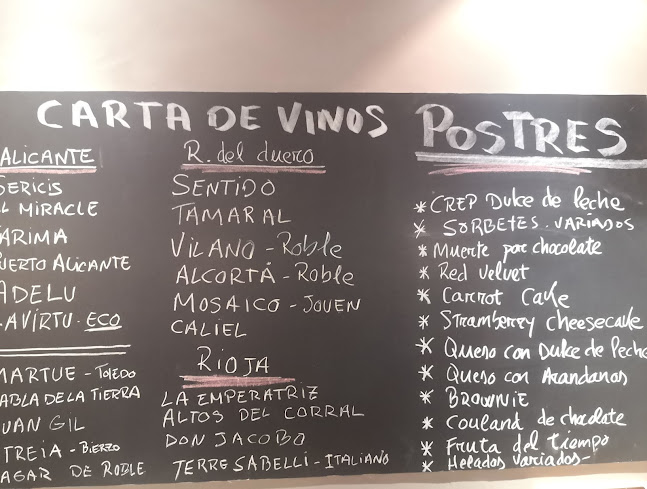 CARTA DE VINOS
ALICANTE
SERICIS
L MIRACLE
ARIMA
UERTO ALICANTE
ADELU
AVIRTU - ECO
MARTUE - TOLEDO
ABLA DE LA TIERRA
UAN GIL
TREIA - BIERZO
AGAR DE ROBLE
R. del duero
SENTIDO
TAMARAL
VILANO - Roble
ALCORTÁ - Roble
MOSAICO - JOVEN
CALIEL
RIOJA
LA EMPERATRIZ
ALTOS DEL CORRAL
DON JACOBO
TERRE SABELLI - ITALIANO
POSTRES
* CREP Dulce de Leche
* SORBETES VARIADOS
* Muerte por chocolate
* Red velvet
* Carrot Cake
* Stramberry cheesecake
* Queso con Dulce de Leche
* Queso con Arandanos
* BROWNIE
* Couland de chocolate
* Fruta del Tiempo
* Helados variados -